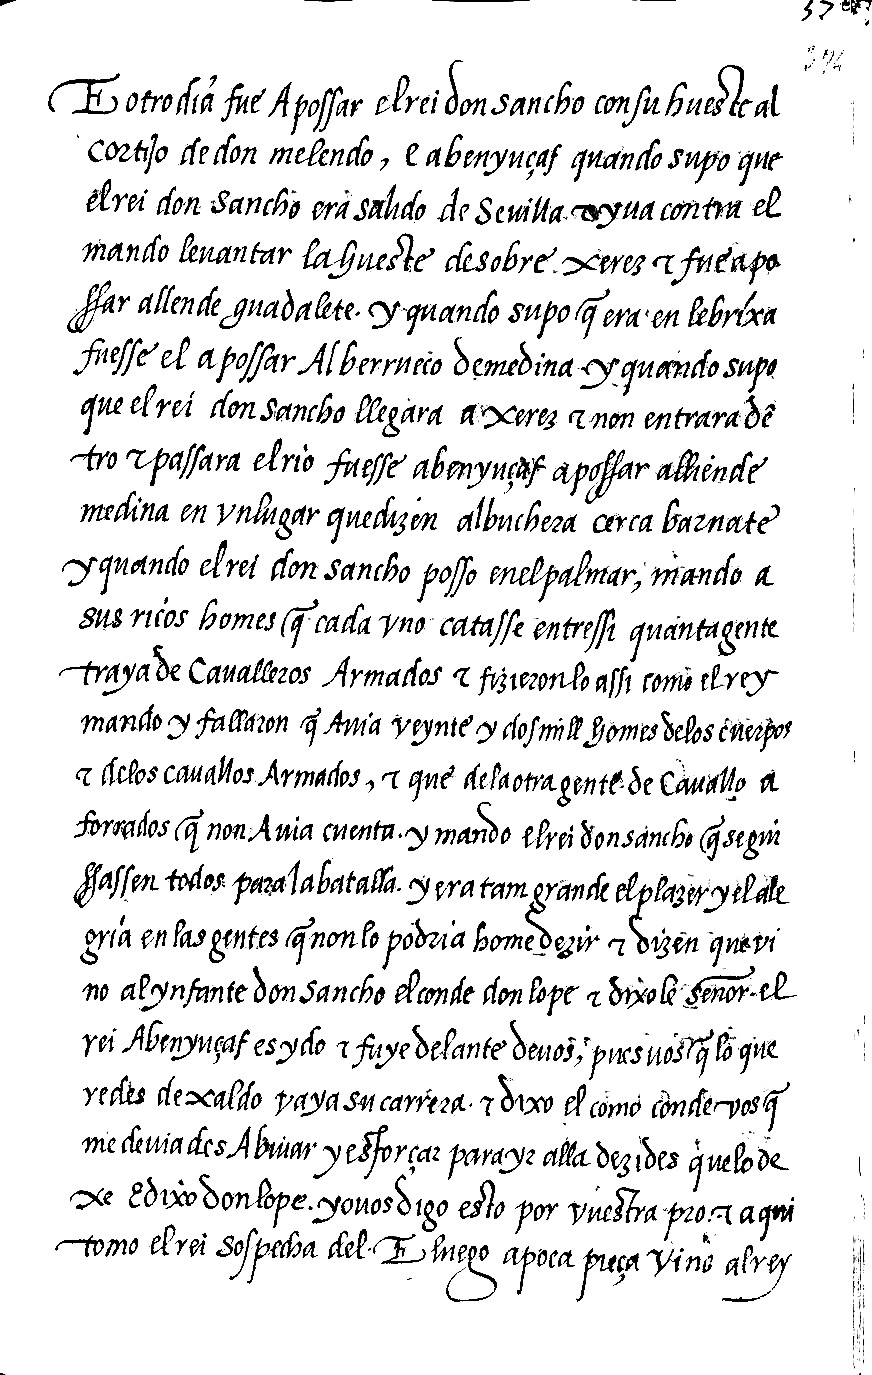 E otro dia fue A possar el rei don sancho con su hueste al
cortijo de don melendo, e abenyuçaf quando supo que
el rei don sancho era salido de Sevilla & yua contra el
mando leuantar la hueste de sobre xerez & fue a po
ssar allende guadalete. y quando supo q̃ era en lebrixa
fuesse el a possar Al berrueco de medina y quando supo
que el rei don sancho llegara a xerez & non entrara dẽ
tro & passara el rio fuesse abenyuçaf a possar alliende
medina en vn lugar que dizen albuhera cerca barnate
y quando el rei don sancho posso en el palmar, mando a
sus ricos homes q̃ cada vno catasse entressi quanta gente
traya de Caualleros Armados & fizieron lo assi como el rey
mando y fallaron q̃ Auia veynte y dos mill homes de los cuerpos
& de los cauallos Armados, & que de la otra gente de Cauallo a
forrados q̃ non Auia cuenta. y mando el rei don sancho q̃ se gui 
ssassen todos para la batalla. y era tam grande el plazer y el ale
gria en las gentes q̃ non lo podria home dezir & dizen que vi
no al ynfante don sancho el conde don lope & dixole señor. el
rei Abenyuçaf es ydo & fuye delante de uos, pues uos q̃ lo que
redes dexaldo vaya su carrera. & dixo el como conde vos q̃
me deuiades Abiuar y esforçar para yr alla dezides que lo de
xe E dixo don lope. yo uos digo esto por vuestra pro. & aqui
tomo el rei sospecha del. E luego a poca pieça vino al rey